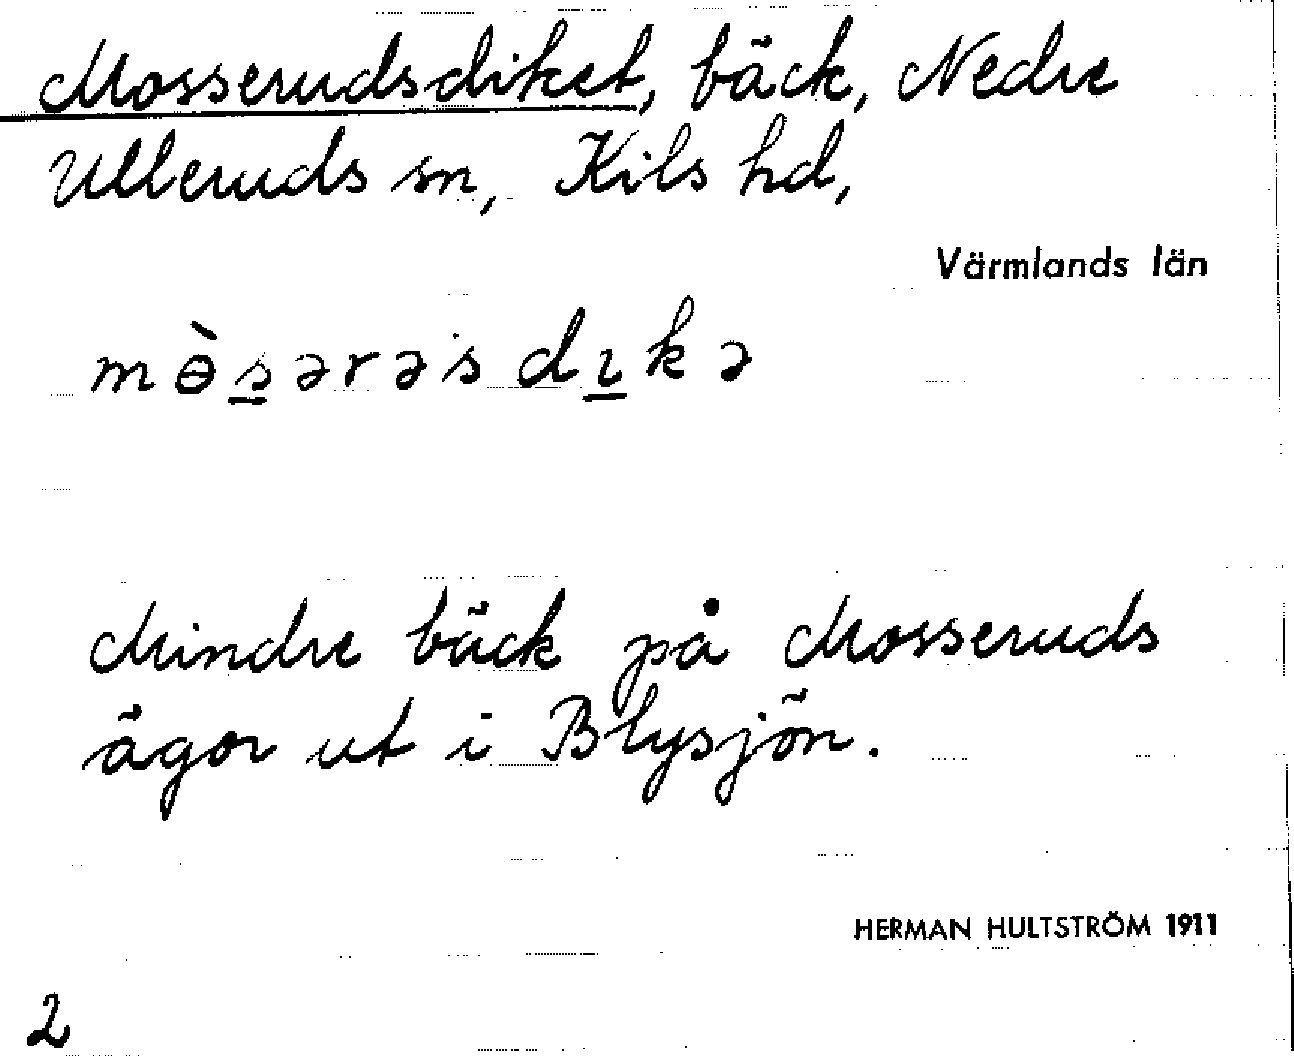 Mosserudsdiket, bäck, Nedre
Ulleruds sn, Kils hd,
Värmlands län
mɵ̀s̲ərəsdɩ̲kə
Mindre bäck på Mosseruds
ägor ut i Blysjön.
HERMAN HULTSTRÖM 1911
2